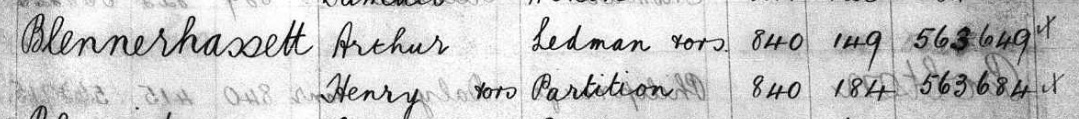 Blennerhassett Arthur Ledman & ors. 840 149 563649 x
Henry & ors Partition 840 184 563684 x